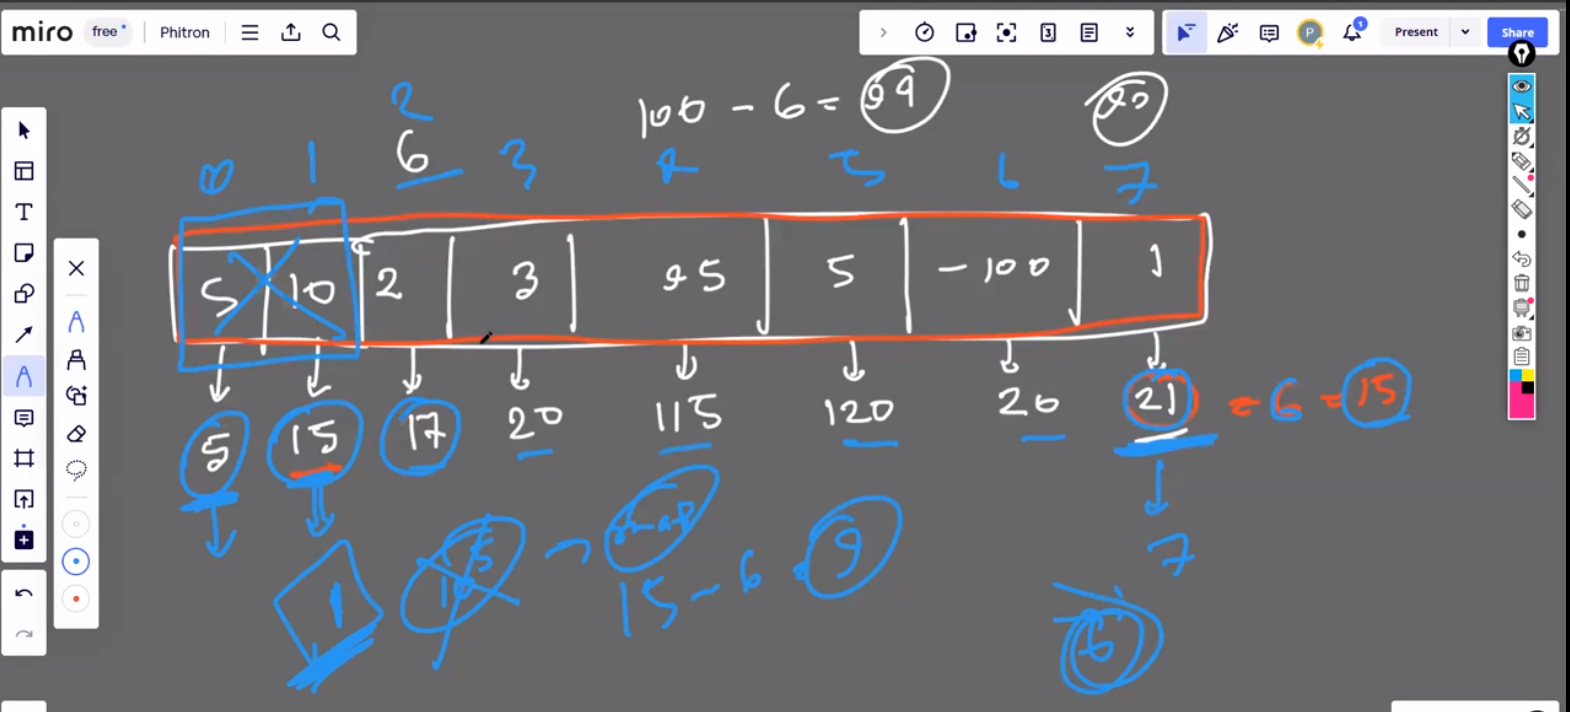 miro free Phitron 3 P 1 Present Share
2
100 - 6 = 94
6
0 1 3 4 5 6 7
5 10 2 3 95 5 -100 1
5 15 17 20 115 120 20 21 = 6 = 15
5
10
7
1
15 - 6 = 9
6